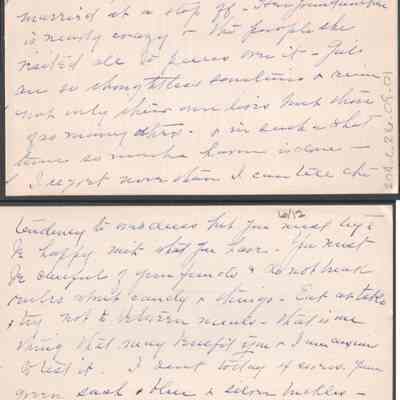 married at a stop of - Your
is nearly crazy & the people she
visited all to pieces over it - Girls
are so thoughtless sometimes & ruin
not only their own lives but those
of so many others - & in such a
time so much harm is done -
I regret more than I can tell the
204.c.26.09.01
6/12
tendency to but you must try &
be happy with what you have. You must
be careful of your & do not break
rules about candy & things - Eat
& try not to between meals - that is one
thing that may benefit you & I am anxious
to test it. I sent today your
green sash & blue & silver buckles -